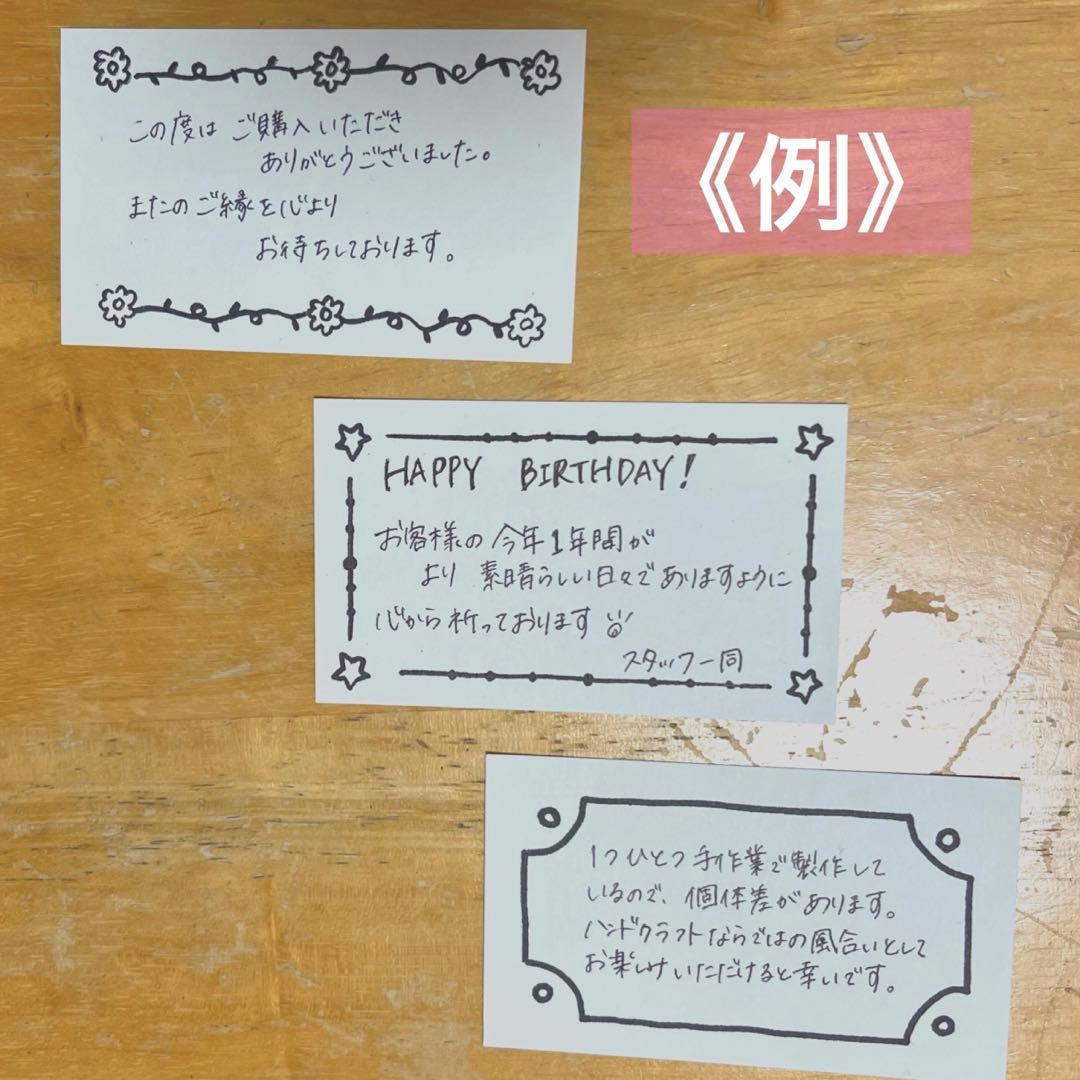 この度は ご購入いただき
ありがとうございました。
またのご縁を心より
お待ちしております。
《例》
HAPPY BIRTHDAY!
お客様の今年1年間が
より 素晴らしい日々でありますように
心から祈っております
スタッフ一同
1つひとつ手作業で製作して
いるので、個体差があります。
ハンドクラフトならではの風合いとして
お楽しみいただけると幸いです。